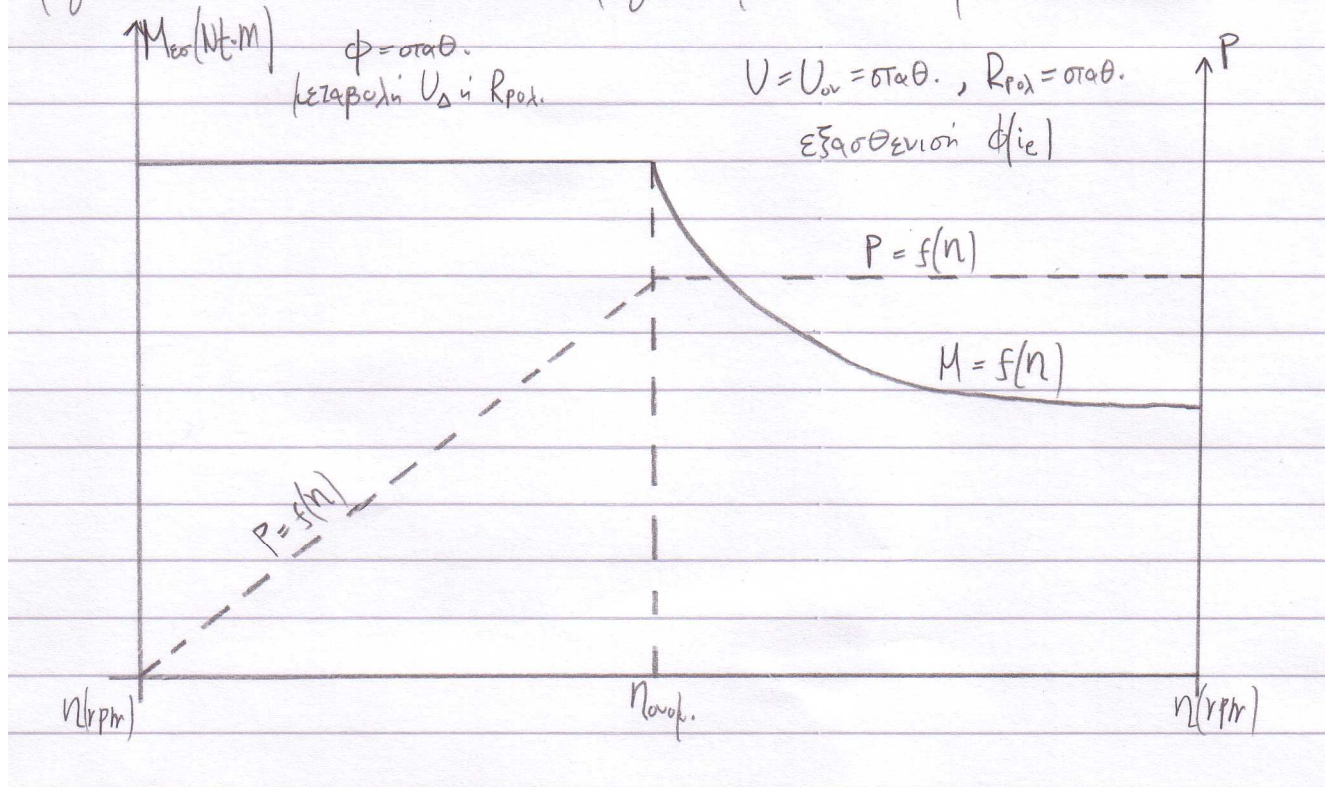 Mεσ(Nt·m)
φ = σταθ.
μεταβολή U_Δ ή Rρολ.
U = Uον = σταθ., Rρολ = σταθ.
εξασθενιση φ(ie)
P
P = f(n)
M = f(n)
P = f(n)
n(rpm)
nονομ.
n(rpm)